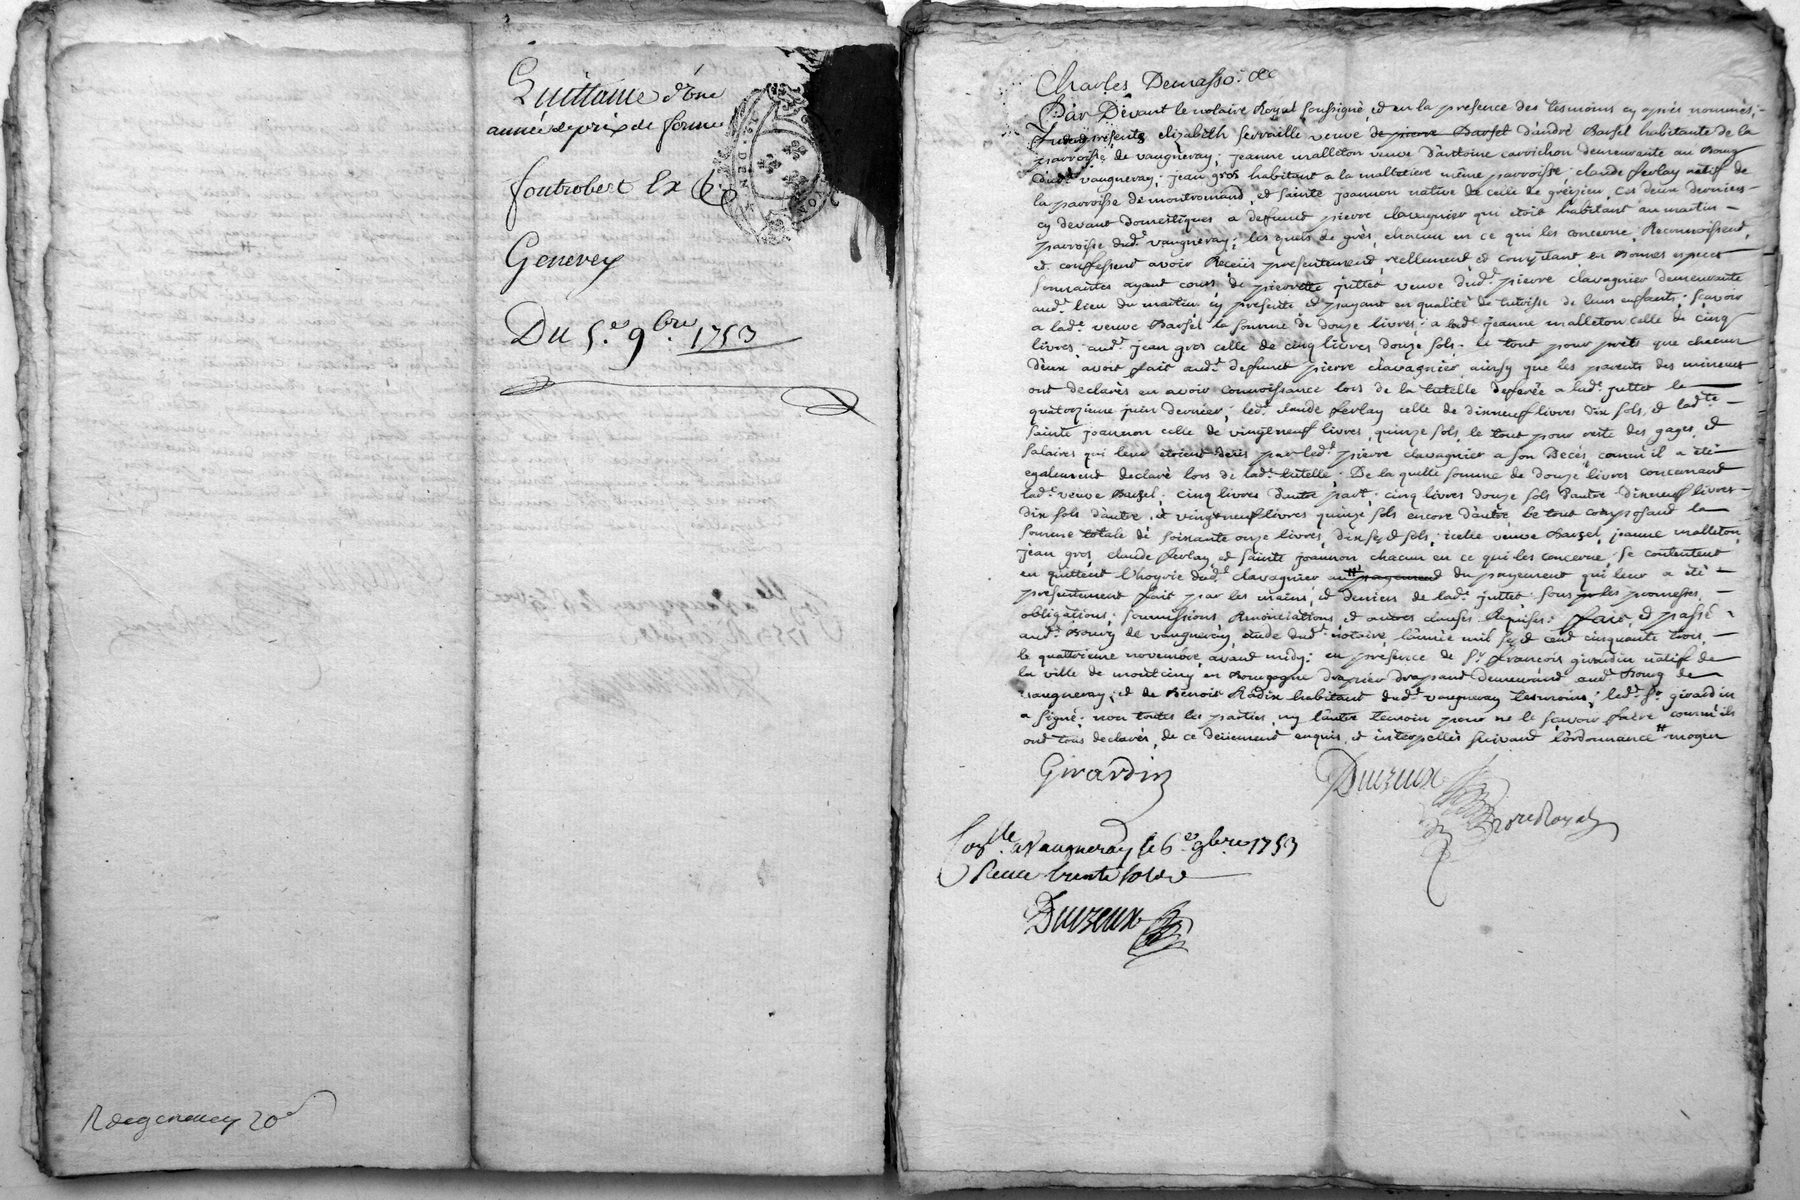 Quittance d'une
année de prix de ferme
fontrobert Ex
Generey
Du 5.e 9bre. 1753
R de generey 20 s
Charles Demasso. &c
Par Devant le notaire Royal soussigné, et en la presence des tesmoins cy après nommés,
furent presents elizabeth servaille veuve de pierre Barsel d'andré Barsel habitante de la
parroisse de vaugneray; jeanne malleton veuve d'antoine corrichon demeurante au Bourg
dud.t vaugneray; jean gros habitant a la maletiere même parroisse; claude ferlay natif de
la parroisse de montromand, et sainte joannon native de celle de grézieu, ces deux derniers
cy devant domestiques a deffunt pierre clavagnier qui etoit habitant au martin
parroisse dud.t vaugneray; les quels de grés, chacun en ce qui les concerne, Reconnoissent,
et confessent avoir Receüs presentement, reellement et comptant en Bonnes especes
sonnantes ayant cours de pierrette juttet veuve dud.t pierre clavagnier demeurante
aud.t lieu du martin cy presente et payant en qualité de tutrisse de leurs enfants; sçavoir
a lad.e veuve Barsel la somme de douze livres; a lad.e jeanne malleton celle de cinq
livres, aud.t jean gros celle de cinq livres douze sols. le tout pour prêts que chacun
d'eux avoit fait aud.t deffunt pierre clavagnier, ainsy que les parents des mineurs
ont declarés en avoir connoissance lors de la tutelle deferée a lad.e juttet le
quatorzieme juin dernier; led.t claude ferlay celle de dixneuf livres dix sols, et lad.te
sainte joannon celle de vingtneuf livres, quinze sols, le tout pour reste des gages, et
salaires qui leur etoient deüs par led.t pierre clavagnier a son Decés, comm'il a eté
egalement declaré lors de lad.e tutelle; De la quelle somme de douze livres concernant
lad.e veuve Barsel; cinq livres d'autre part; cinq livres douze sols d'autre dixneuf livres
dix sols d'autre, et vingtneuf livres quinze sols encore d'autre, le tout composant la
somme totale de soixante onze livres, dix sept sols; icelle veuve Barsel, jeanne malleton,
jean gros, claude ferlay, et sainte joannon chacun en ce qui les concerne, se contentent
en quittent l'hoyrie dud.t clavagnier au # payement du payement qui leur a eté
presentement fait par les mains, et deniers de lad.e juttet. sous les promesses,
obligations, soumissions, Renonciations, et autres clauses Requises: fait, et passé
aud.t Bourg de vaugneray, etude dud.t notaire l'année mil sept cent cinquante trois,
le quatrieme novembre, avant midy; en presence de S.r françois girardin natif de
la ville de montcing en Bourgogne drapier drapant demeurant aud.t Bourg de
vaugneray; et de Benoit Radix habitant dud.t vaugneray tesmoins; led.t S.r girardin
a signé; non toutes les parties, ny l'autre tesmoin pour ne le sçavoir faire comm'ils
ont tous declarés, de ce deüement enquis, et interpellés suivant l'ordonnance # moyen
Girardin
Duizeux
Nore Royal
Con.lle a Vaugneray le 6.e 9bre 1753
Receu trente sols
Duizeux